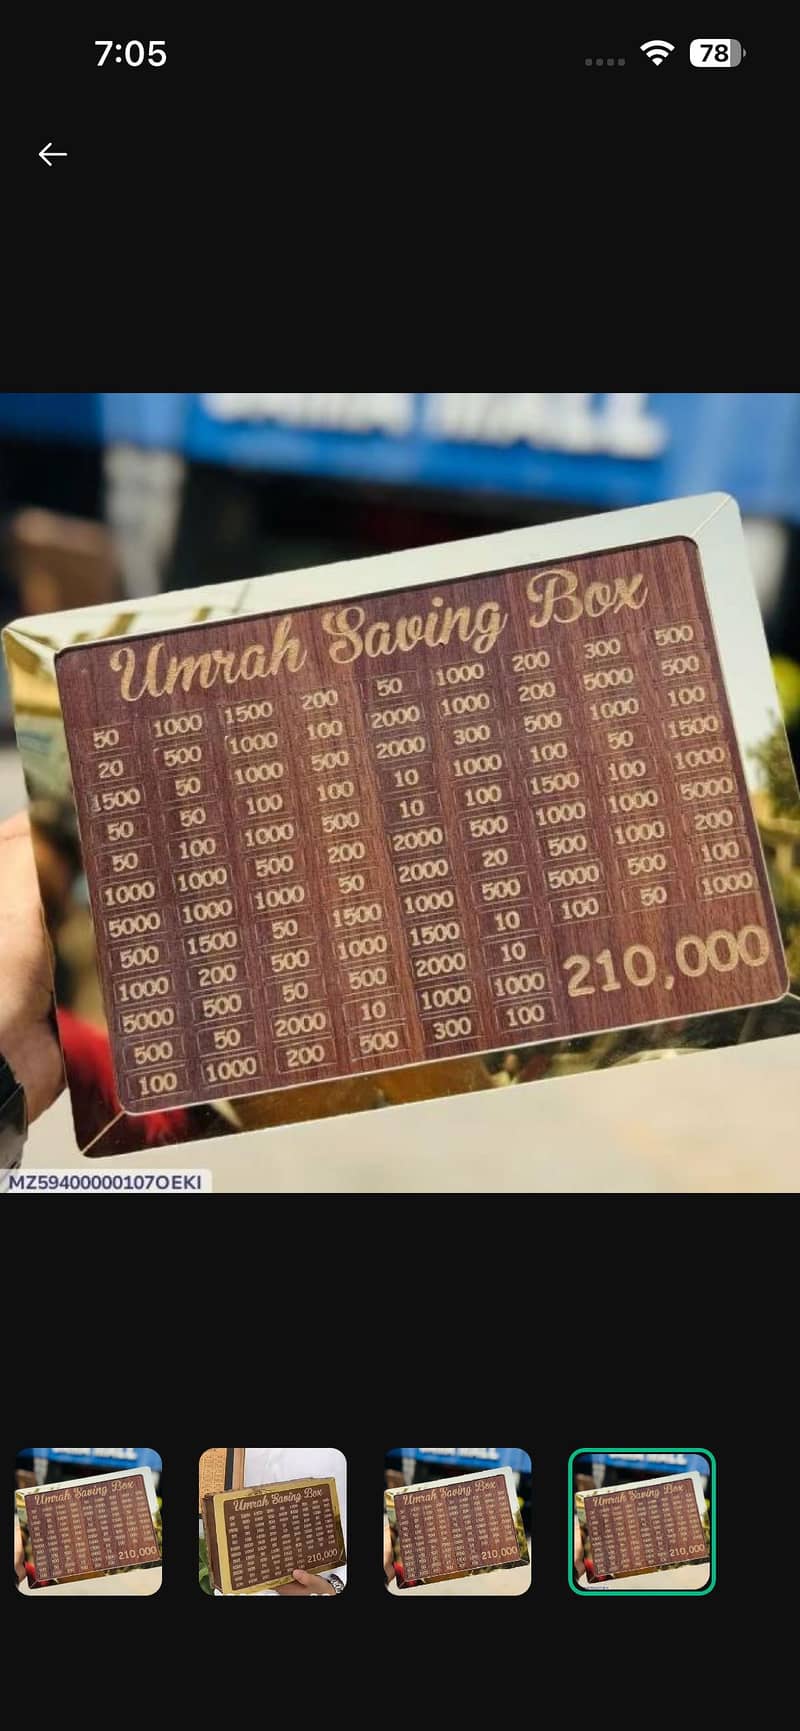 7:05
78
Umrah Saving Box
50 1000 1500 200 50 1000 200 300 500
20 500 1000 100 2000 1000 200 5000 500
1500 50 1000 500 2000 300 500 1000 100
50 50 100 100 10 1000 100 50 1500
50 100 1000 500 10 100 1500 100 1000
1000 1000 500 200 2000 500 1000 1000 5000
5000 1000 1000 50 2000 20 500 1000 200
500 1500 50 1500 1000 500 5000 500 100
1000 200 500 1000 1500 10 100 50 1000
5000 500 50 500 2000 10 210,000
500 50 2000 10 1000 1000
100 1000 200 500 300 100
MZ59400000107OEKI
Umrah Saving Box
210,000
Umrah Saving Box
210,000
Umrah Saving Box
210,000
Umrah Saving Box
210,000